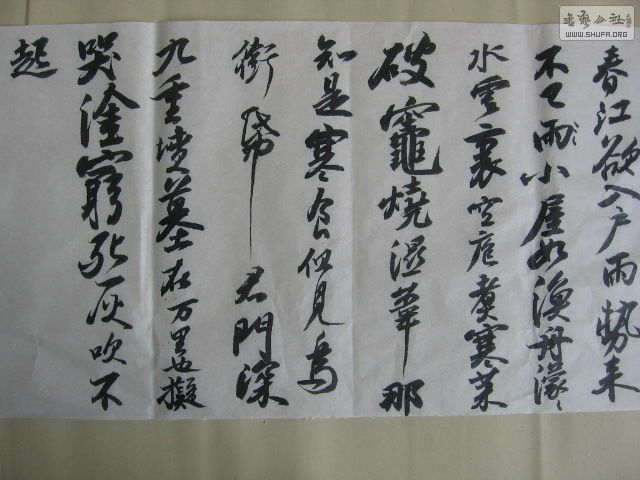 春江欲入戶雨勢来
不已雨小屋如漁舟濛〻
水雲裏空庖煮寒菜
破竈燒濕葦那
知是寒食但見烏
銜帋君門深
九重墳墓在万里也擬
哭塗窮死灰吹不
起
书艺公社
WWW.SHUFA.ORG